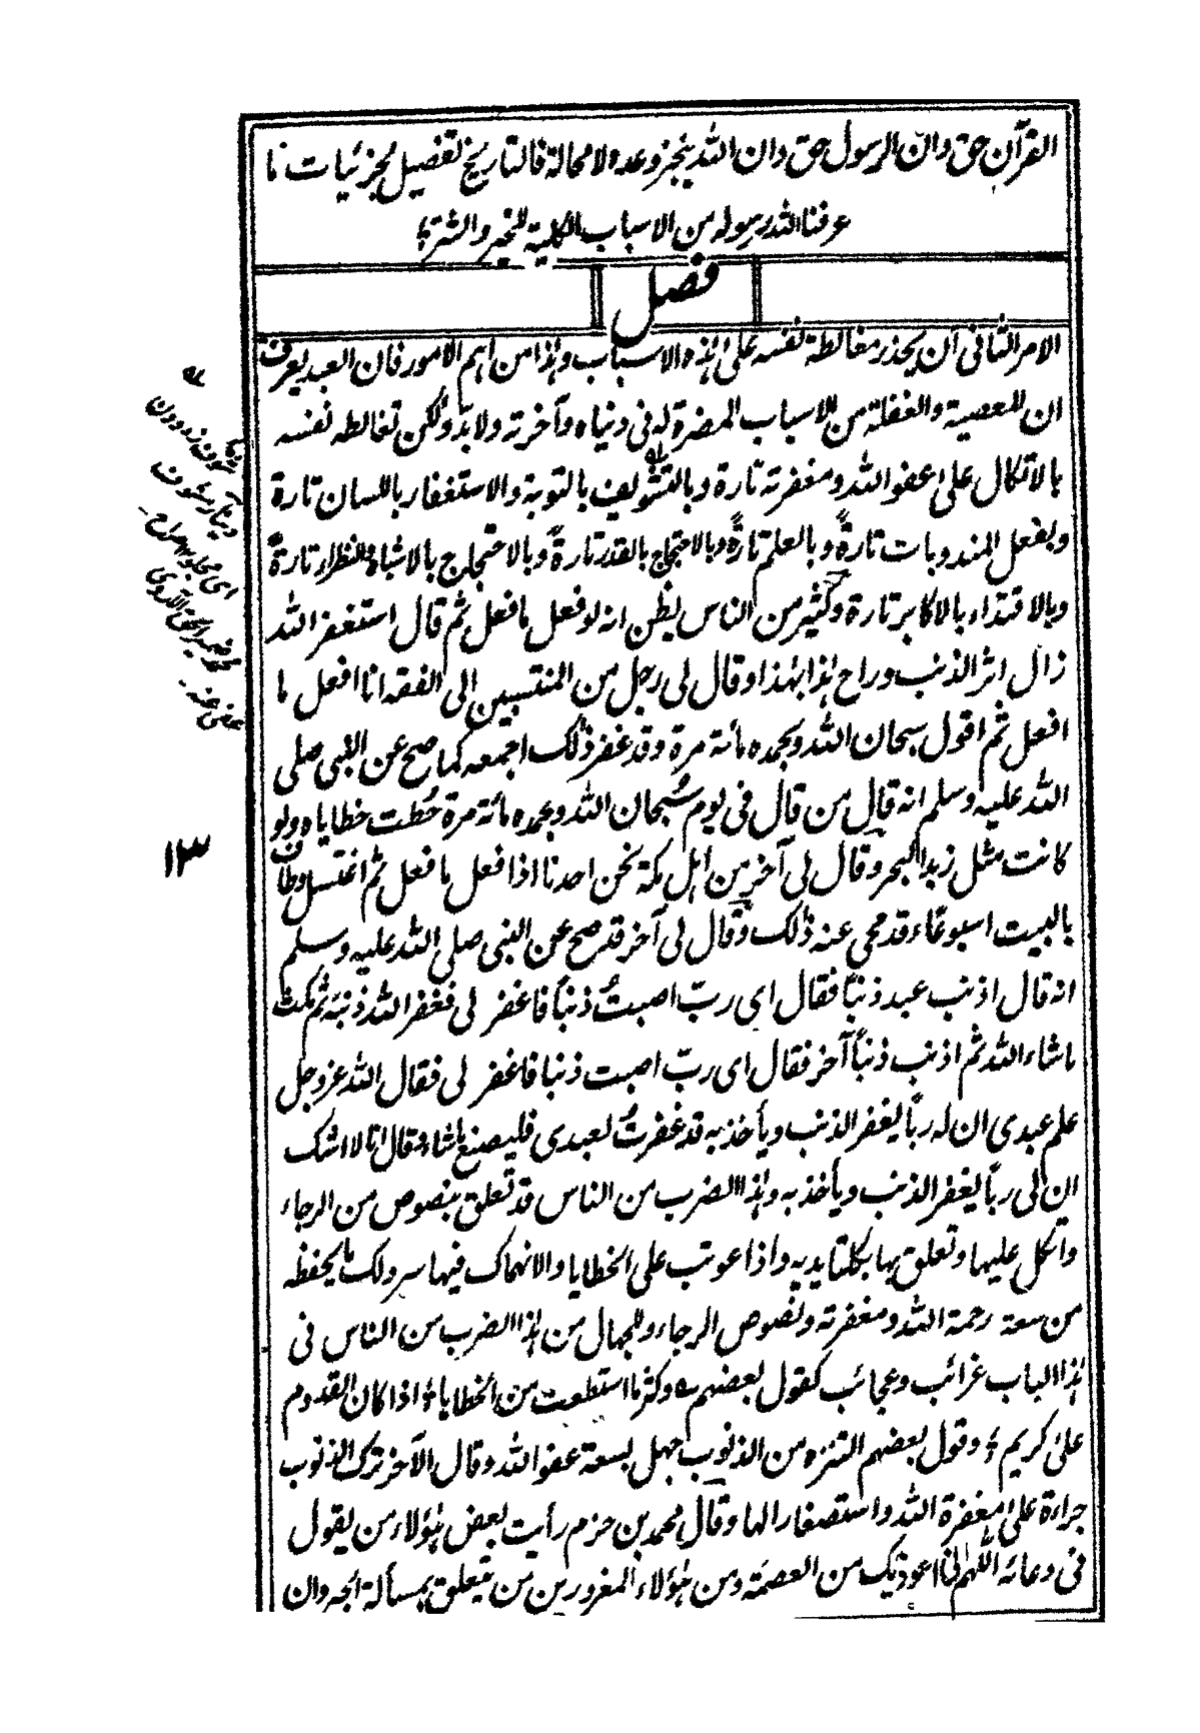 القرآن حق وان الرسول حق وان الله ينجز وعده لا محالة فالتاريخ تفصيل لجزئيات ما
عرفنا الله ورسوله من الاسباب الكلية للخير والشر
فصل
الامر الثانى ان يحذر مغالطة نفسه على هذه الاسباب وهذا من اهم الامور فان العبد يعرف
ان المعصية والغفلة من الاسباب المضرة له فى دنياه وآخرته ولا بدّ ولكن تغالطه نفسه
بالاتكال على عفو الله ومغفرته تارة وبالتسويف بالتوبة والاستغفار باللسان تارة
وبفعل المندوبات تارةً وبالعلم تارةً وبالاحتجاج بالقدر تارةً وبالاحتجاج بالاشباه والنظراء تارةً
وبالاقتداء بالاكابر تارة وكثير من الناس يظن انه لو فعل ما فعل ثم قال استغفر الله
زال اثر الذنب وراح هذا بهذا وقال لى رجل من المنتسبين الى الفقه انا افعل ما
افعل ثم اقول سبحان الله وبحمده مائة مرة وقد غفر ذلك اجمعه كما صح عن النبى صلى
الله عليه وسلم انه قال من قال فى يوم سُبحان الله وبحمده مائة مرة حُطت خطاياه ولو
كانت مثل زبد البحر وقال لى آخر من اهل مكة نحن احدنا اذا فعل ما فعل ثم اغتسل وطاف
بالبيت اسبوعًا وقد محى عنه ذلك وقال لى آخر قد صح عن النبى صلى الله عليه وسلم
انه قال اذنب عبد ذنبًا فقال اى ربّ اصبتُ ذنباً فاغفر لى فغفر الله ذنبه ثم مكث
ما شاء الله ثم اذنب ذنباً آخر فقال اى ربّ اصبت ذنبا فاغفر لى فقال الله عز وجل
علم عبدى ان له رباً يغفر الذنب ويأخذ به قد غفرتُ لعبدى فليصنع ما شاء وقال انا لا اشك
ان لى رباً يغفر الذنب ويأخذ به وهذا الضرب من الناس قد تعلق بنصوص من الرجاء
واتكل عليها وتعلق بها بكلتا يديه واذا عوتب على الخطايا والانهماك فيها سرد لك ما يحفظه
من سعة رحمة الله ومغفرته ونصوص الرجاء وللجهال من هذا الضرب من الناس فى
هذا الباب غرائب وعجائب كقول بعضهم وكثر ما استطعت من الخطايا اذا كان القدوم
على كريم وقول بعضهم التنزه من الذنوب جهل بسعة عفو الله وقال الآخر ترك الذنوب
جراءة على مغفرة الله واستصغار الها وقال محمد بن حزم رأيت بعض هؤلاء من يقول
فى دعائه اللهم انى اعوذ بك من العصمة ومن هؤلاء المغرورين من يتعلق بمسألة الجبر وان
١٣